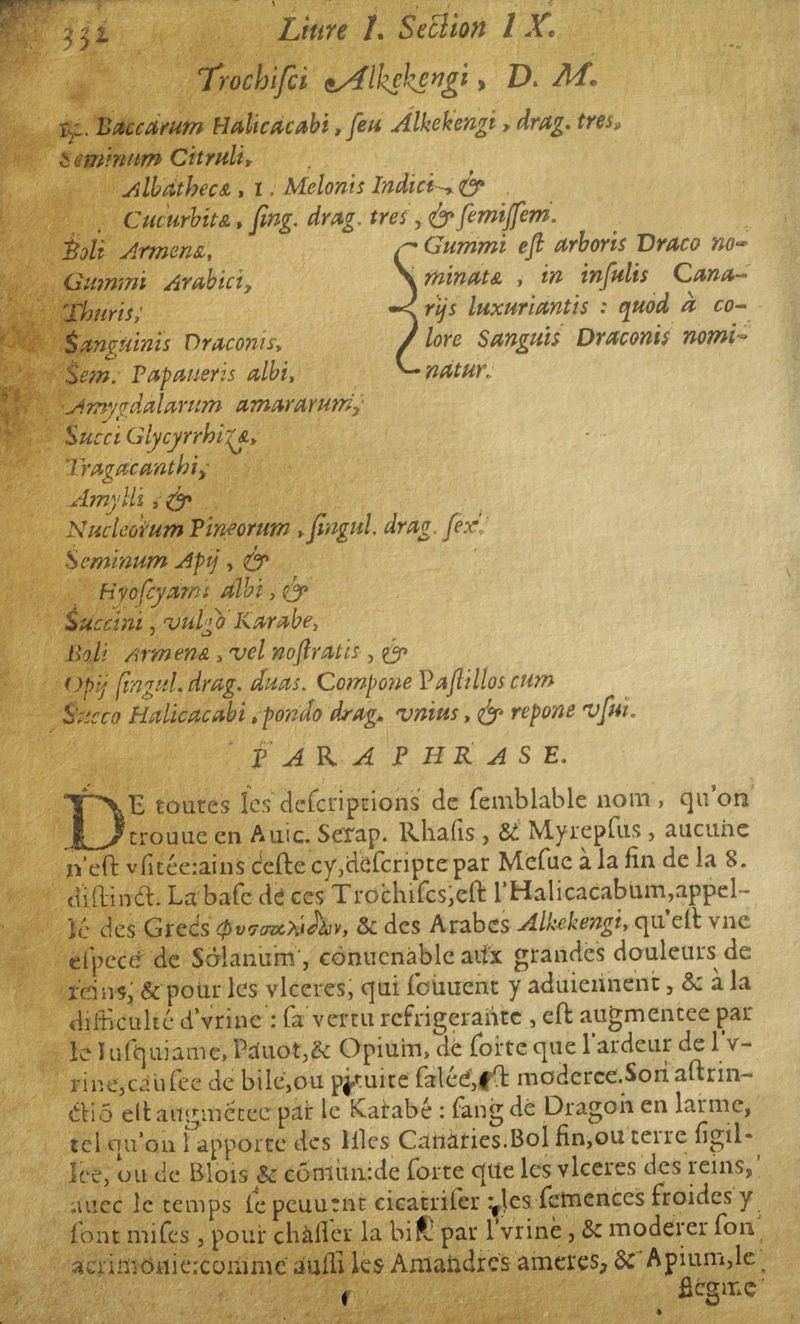 332 Liure I. Section IX.
Trochisci Alkekengi, D. M.
℞. Baccarum Halicacabi, seu Alkekengi, drag. tres,
Seminum Citruli,
Albathecæ, 1. Melonis Indici, &
Cucurbitæ, sing. drag. tres, & semissem.
Boli Armenæ,
Gummi Arabici,
Thuris,
Sanguinis Draconis,
Sem. Papaueris albi,
Gummi est arboris Draco no-
minatæ, in insulis Cana-
rijs luxuriantis : quod à co-
lore Sanguis Draconis nomi-
natur.
Amygdalarum amararum,
Succi Glycyrrhizæ,
Tragacanthi,
Amylli, &
Nucleorum Pineorum, singul. drag. sex.
Seminum Apij, &
Hyoscyami albi, &
Succini, vulgò Karabe,
Boli Armenæ, vel nostratis, &
Opij singul. drag. duas. Compone Pastillos cum
Succo Halicacabi, pondo drag. vnius, & repone vsui.
PARAPHRASE.
DE toutes les descriptions de semblable nom, qu'on
trouue en Auic. Serap. Rhasis, & Myrepsus, aucune
n'est vsitée:ains ceste cy, descripte par Mesue à la fin de la 8.
distinct. La base de ces Trochiscs, est l'Halicacabum, appel-
lé des Grecs φυσαλίδων, & des Arabes Alkekengi, qu'est vne
espece de Solanum, conuenable aux grandes douleurs de
reins, & pour les vlceres, qui souuent y aduiennent, & à la
difficulté d'vrine : sa vertu refrigerante, est augmentee par
le Iusquiame, Pauot, & Opium, de sorte que l'ardeur de l'v-
rine, causee de bile, ou pituite salée, est moderee. Son astrin-
ctiō est augmētee par le Karabé : sang de Dragon en larme,
tel qu'on l'apporte des Isles Canaries. Bol fin, ou terre sigil-
lee, ou de Blois & cōmun:de sorte que les vlceres des reins,
auec le temps se peuuent cicatriser : les semences froides y
sont mises, pour chasser la bile par l'vrine, & moderer son
acrimonie:comme aussi les Amandres ameres, & Apium, le
flegme